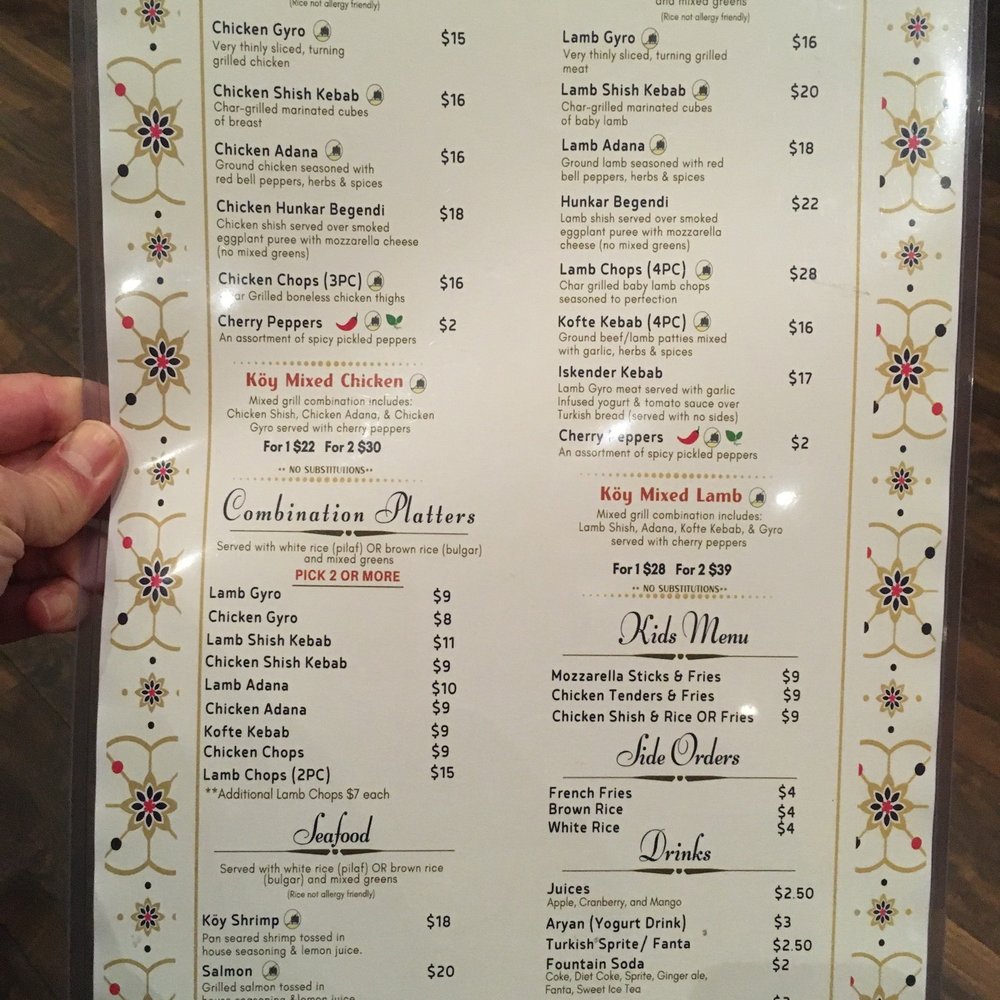 (Rice not allergy friendly)
Chicken Gyro $15
Very thinly sliced, turning
grilled chicken
Chicken Shish Kebab $16
Char-grilled marinated cubes
of breast
Chicken Adana $16
Ground chicken seasoned with
red bell peppers, herbs & spices
Chicken Hunkar Begendi $18
Chicken shish served over smoked
eggplant puree with mozzarella cheese
(no mixed greens)
Chicken Chops (3PC) $16
Char Grilled boneless chicken thighs
Cherry Peppers $2
An assortment of spicy pickled peppers
Köy Mixed Chicken
Mixed grill combination includes:
Chicken Shish, Chicken Adana, & Chicken
Gyro served with cherry peppers
For 1 $22 For 2 $30
** NO SUBSTITUTIONS**
Combination Platters
Served with white rice (pilaf) OR brown rice (bulgar)
and mixed greens
PICK 2 OR MORE
Lamb Gyro $9
Chicken Gyro $8
Lamb Shish Kebab $11
Chicken Shish Kebab $9
Lamb Adana $10
Chicken Adana $9
Kofte Kebab $9
Chicken Chops $9
Lamb Chops (2PC) $15
**Additional Lamb Chops $7 each
Seafood
Served with white rice (pilaf) OR brown rice
(bulgar) and mixed greens
(Rice not allergy friendly)
Köy Shrimp $18
Pan seared shrimp tossed in
house seasoning & lemon juice.
Salmon $20
Grilled salmon tossed in
house seasoning & lemon juice
and mixed greens
(Rice not allergy friendly)
Lamb Gyro $16
Very thinly sliced, turning grilled
meat
Lamb Shish Kebab $20
Char-grilled marinated cubes
of baby lamb
Lamb Adana $18
Ground lamb seasoned with red
bell peppers, herbs & spices
Hunkar Begendi $22
Lamb shish served over smoked
eggplant puree with mozzarella
cheese (no mixed greens)
Lamb Chops (4PC) $28
Char grilled baby lamb chops
seasoned to perfection
Kofte Kebab (4PC) $16
Ground beef/lamb patties mixed
with garlic, herbs & spices
Iskender Kebab $17
Lamb Gyro meat served with garlic
Infused yogurt & tomato sauce over
Turkish bread (served with no sides)
Cherry Peppers $2
An assortment of spicy pickled peppers
Köy Mixed Lamb
Mixed grill combination includes:
Lamb Shish, Adana, Kofte Kebab, & Gyro
served with cherry peppers
For 1 $28 For 2 $39
** NO SUBSTITUTIONS**
Kids Menu
Mozzarella Sticks & Fries $9
Chicken Tenders & Fries $9
Chicken Shish & Rice OR Fries $9
Side Orders
French Fries $4
Brown Rice $4
White Rice $4
Drinks
Juices $2.50
Apple, Cranberry, and Mango
Aryan (Yogurt Drink) $3
Turkish Sprite/ Fanta $2.50
Fountain Soda $2
Coke, Diet Coke, Sprite, Ginger ale,
Fanta, Sweet Ice Tea